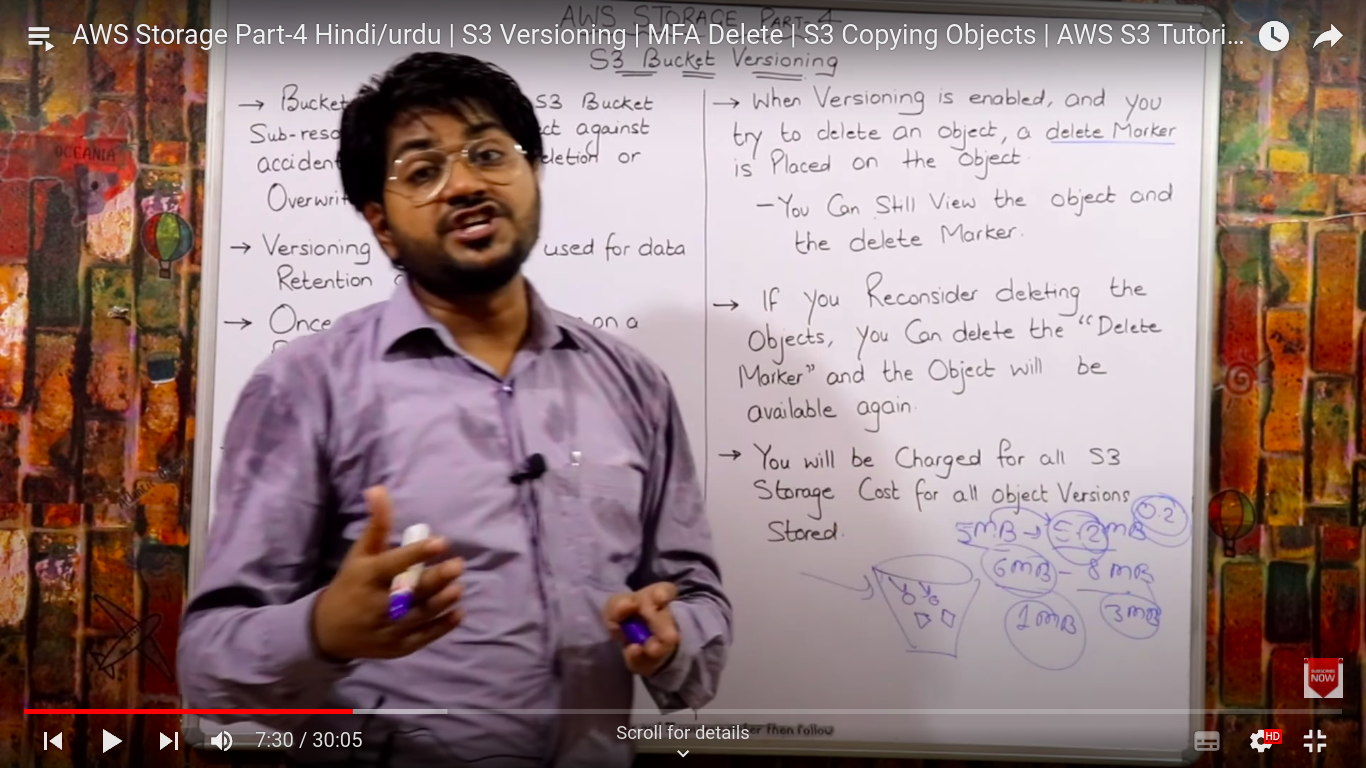 AWS Storage Part-4 Hindi/urdu | S3 Versioning | MFA Delete | S3 Copying Objects | AWS S3 Tutori...
AWS STORAGE PART-4
S3 Bucket Versioning
→ Bucket S3 Bucket
Sub-reso ct against
accident eletion or
Overwrit
→ Versioning used for data
Retention
→ Once on a
→ When Versioning is enabled, and you
try to delete an object, a delete Marker
is Placed on the Object.
- You Can Still View the object and
the delete Marker.
→ If you Reconsider deleting the
Objects, you Can delete the "Delete
Marker" and the Object will be
available again.
→ You will be Charged for all S3
Storage Cost for all object Versions
Stored.
5MB → 5.2MB 0.2
6MB - 8MB
1MB 3MB
OCEANIA
SUBSCRIBE
NOW
Then follow
7:30 / 30:05
Scroll for details
HD